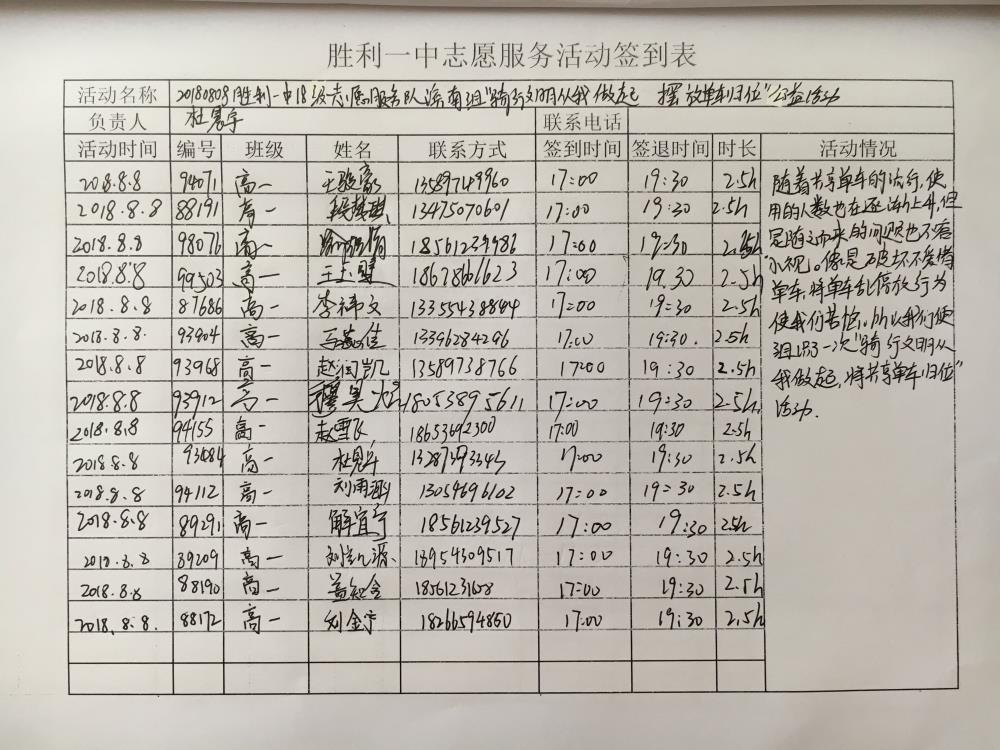 胜利一中志愿服务活动签到表
活动名称 20180808胜利一中18级志愿服务队滨南组"骑行文明从我做起 摆放单车归位"公益活动
负责人 杜 宇 联系电话
活动时间 编号 班级 姓名 联系方式 签到时间 签退时间 时长 活动情况
2018.8.8 94071 高一 王 家 13589749960 17:00 19:30 2.5h
2018.8.8 88191 高一 13475070601 17:00 19:30 2.5h
2018.8.8 98076 高一 18561239986 17:00 19:30 2.5h
2018.8.8 99503 高一 王玉 18678661623 17:00 19.30 2.5h
2018.8.8 87686 高一 李祎文 17:00 19:30 2.5h
2018.8.8. 93904 高一 马 佳 13396284296 17:00 19:30. 2.5h
2018.8.8 93968 高一 赵润凯 13589738766 17:00 19:30 2.5h
2018.8.8 93912 高一 穆昊 18053895611 17:00 19:30 2.5h.
2018.8.8 94155 高一 赵雪飞 18653692300 17:00 19:30 2.5h
2018.8.8 高一 17:00 19:30 2.5h
2018.8.8 94112 高一 刘雨 13054696102 17:00 19:30 2.5h
2018.8.8 89291 高一 解宜宁 18561239527 17:00 19:30 2.5h
2018.8.8 89209 高一 刘 源 18954309517 17:00 19:30 2.5h
2018.8.8 88190 高一 盖 17:00 19:30 2.5h
2018.8.8. 88172 高一 刘金宇 18266594860 17:00 19:30 2.5h
随着共享单车的流行,使
用的人数也在逐渐上升,但
是随之而来的问题也不容
小视。像是破坏不爱惜
单车,将单车乱停放行为
使我们苦恼。所以我们便
组织了一次"骑行文明从
我做起,将共享单车归位"
活动.